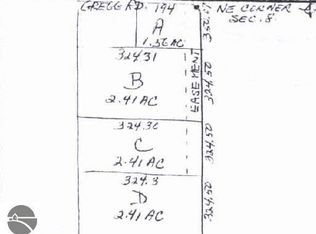 GREGG RD. 194
NE CORNER
SEC. 8
A
1.56 AC
324.31
B
2.41 AC
EASEMENT
324.50
324.30
C
2.41 AC
324.50
324.3
D
2.41 AC
324.50